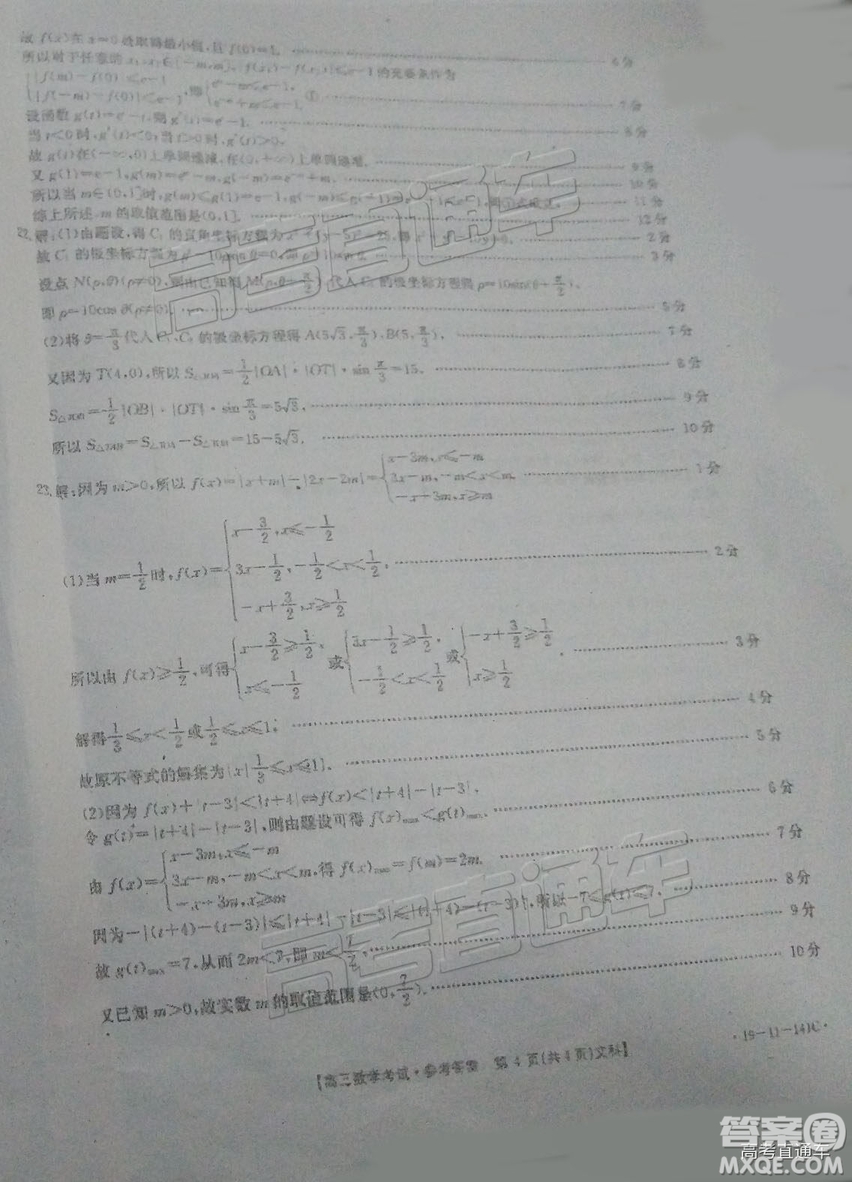 故 f(x)在 x=0 处取得最小值,且 f(0)=1. 6分
所以对于任意的 x₁,x₂∈[-m,m],|f(x₁)-f(x₂)|≤e-1 的充要条件为
{|f(m)-f(0)|≤e-1, |f(-m)-f(0)|≤e-1, 即{eᵐ-m≤e-1, e⁻ᵐ+m≤e-1. ① 7分
设函数 g(t)=eᵗ-t,则 g′(t)=eᵗ-1. 8分
当 t<0 时,g′(t)<0;当 t>0 时,g′(t)>0.
故 g(t)在(-∞,0)上单调递减,在(0,+∞)上单调递增. 9分
又 g(1)=e-1,g(m)=eᵐ-m,g(-m)=e⁻ᵐ+m, 10分
所以当 m∈(0,1]时,g(m)≤g(1)=e-1,g(-m)≤ 11分
综上所述,m 的取值范围是(0,1]. 12分
22.解:(1)由题设,得 C₁ 的直角坐标方程为 2分
故 C₁ 的极坐标方程为 3分
设点 N(ρ,θ)(ρ≠0),则由已知得 M(ρ,θ+π/2),代入 C₁ 的极坐标方程得 ρ=10sin(θ+π/2),
即 ρ=10cos θ(ρ≠0). 5分
(2)将 θ=π/3 代入 C₁,C₂ 的极坐标方程得 A(5√3,π/3),B(5,π/3). 7分
又因为 T(4,0),所以 S△TOA=1/2|OA|·|OT|·sin π/3=15, 8分
S△TOB=1/2|OB|·|OT|·sin π/3=5√3, 9分
所以 S△TAB=S△TOA-S△TOB=15-5√3. 10分
23.解:因为 m>0,所以 f(x)=|x+m|-|2x-2m|={x-3m,x≤-m 3x-m,-m<x<m, -x+3m,x≥m 1分
(1)当 m=1/2 时,f(x)={x-3/2,x≤-1/2 3x-1/2,-1/2<x<1/2, -x+3/2,x≥1/2 2分
所以由 f(x)≥1/2,可得{x-3/2≥1/2, x≤-1/2 或{3x-1/2≥1/2, -1/2<x<1/2 或{-x+3/2≥1/2 x≥1/2 . 3分
解得 1/3≤x<1/2 或 1/2≤x≤1; 4分
故原不等式的解集为{x|1/3≤x≤1}. 5分
(2)因为 f(x)+|t-3|<|t+4|⇔f(x)<|t+4|-|t-3|, 6分
令 g(t)=|t+4|-|t-3|,则由题设可得 f(x)max<g(t)max.
由 f(x)={x-3m,x≤-m 3x-m,-m<x<m, -x+3m,x≥m 得 f(x)max=f(m)=2m. 7分
因为-|(t+4)-(t-3)|≤|t+4|-|t-3|≤|(t+4)-(t-3)|,所以-7≤g(t)≤7. 8分
故 g(t)max=7,从而 2m<7,即 m<7/2, 9分
又已知 m>0,故实数 m 的取值范围是(0,7/2). 10分
【高三数学考试·参考答案 第4页(共4页)文科】 ·19-11-141C·
高考直通车
答案圈
高考直通车
MXQE.COM